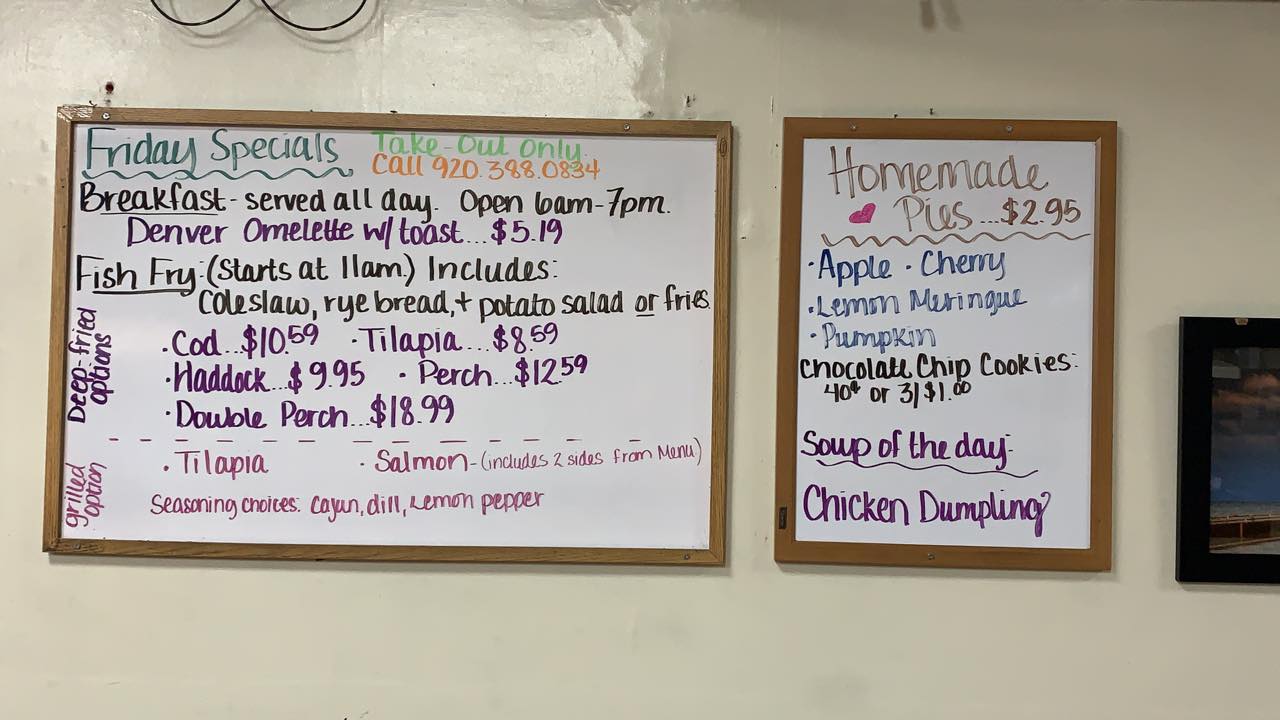 Friday Specials Take-Out Only.
Call 920.388.0834
Breakfast - served all day. Open 6am-7pm.
Denver Omelette w/ toast...$5.19
Fish Fry: (Starts at 11am.) Includes:
Coleslaw, rye bread, + potato salad or fries.
Deep-fried options
· Cod...$10.59 · Tilapia...$8.59
· Haddock...$9.95 · Perch...$12.59
· Double Perch...$18.99
grilled option
· Tilapia · Salmon - (includes 2 sides from Menu)
Seasoning choices: Cajun, dill, Lemon pepper
Homemade
Pies...$2.95
· Apple · Cherry
· Lemon Meringue
· Pumpkin
Chocolate Chip Cookies:
40¢ or 3/$1.00
Soup of the day:
Chicken Dumpling